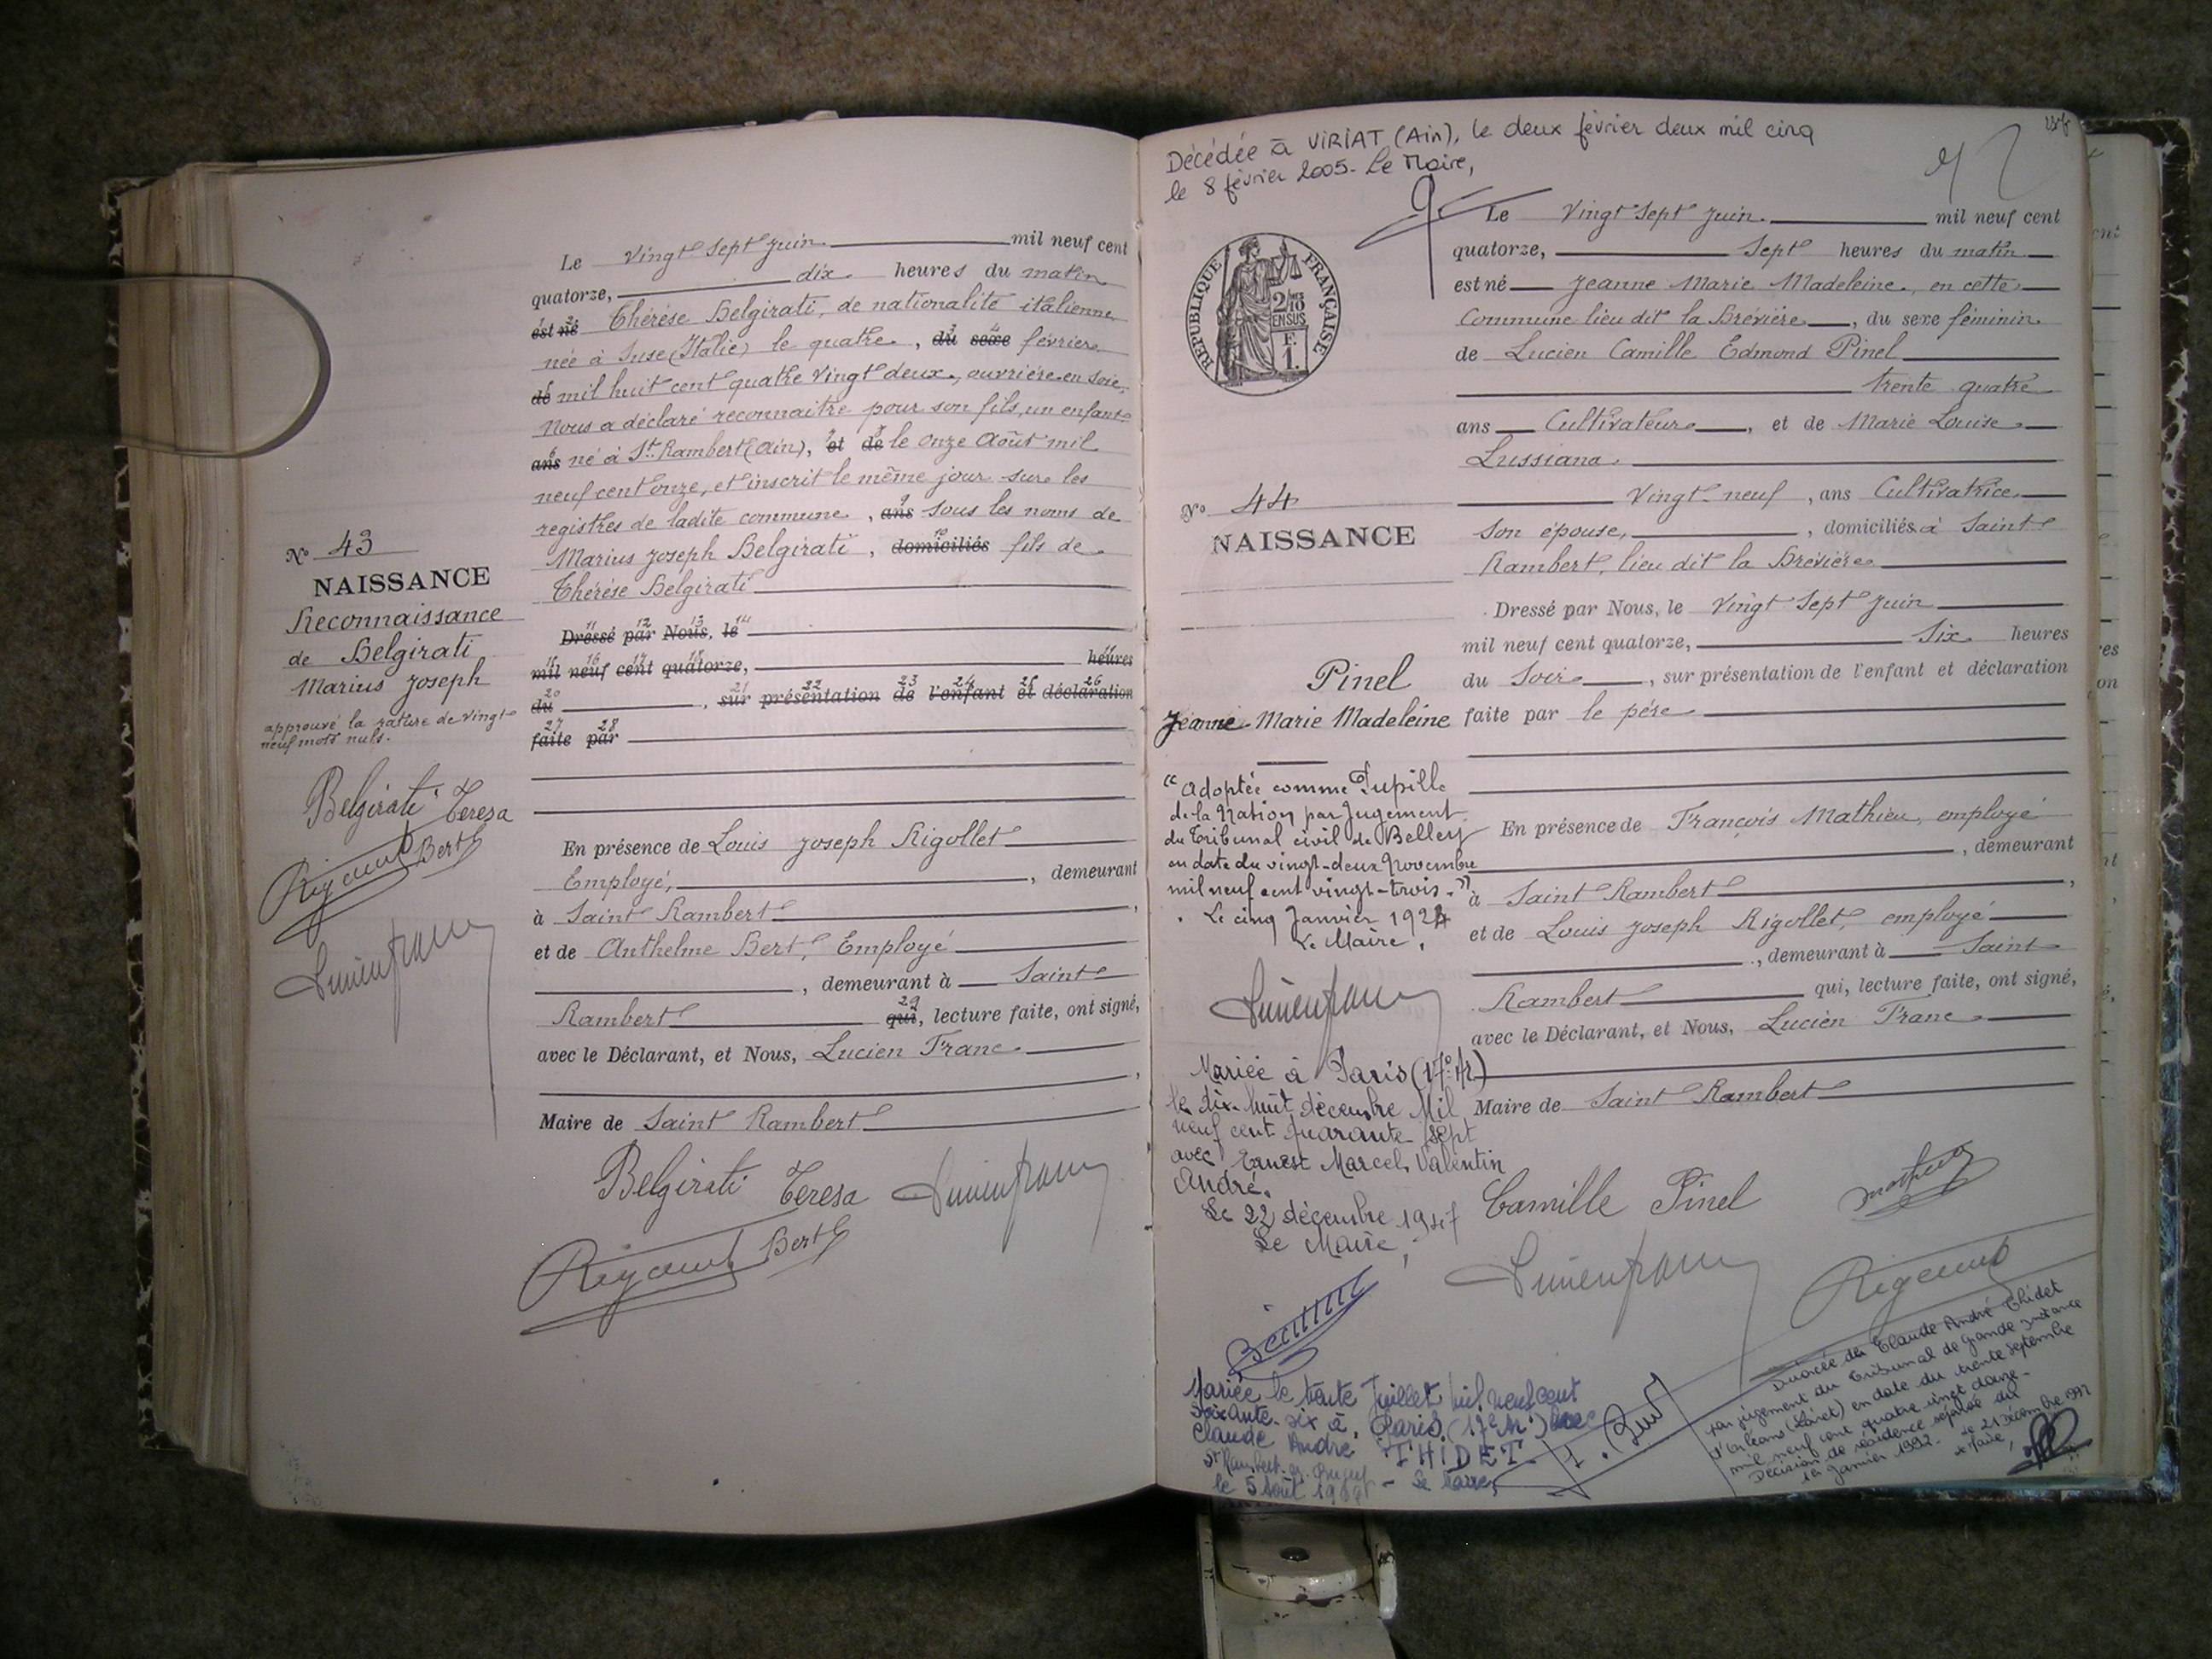 Le Vingt Sept Juin mil neuf cent
quatorze, dix heures du matin
est né Thérèse Belgirati, de nationalité italienne
née à Suse (Italie) le quatre, du sexe février
de mil huit cent quatre vingt deux, ouvrière en soie,
Nous a déclaré reconnaitre pour son fils, un enfant
ans né à St Rambert (Ain), et de le onze Août mil
neuf cent onze, et inscrit le même jour sur les
registres de ladite commune, ans sous les noms de
Marius Joseph Belgirati, domiciliés fils de
Thérèse Belgirati
Dressé par Nous, le
mil neuf cent quatorze, heures
du , sur présentation de l'enfant et déclaration
faite par
En présence de Louis Joseph Rigollet
Employé, , demeurant
à Saint Rambert ,
et de Anthelme Bert, Employé
, demeurant à Saint
Rambert qui, lecture faite, ont signé,
avec le Déclarant, et Nous, Lucien Franc
,
Maire de Saint Rambert
Belgirati Teresa
Bert
N° 43
NAISSANCE
Reconnaissance
de Belgirati
Marius Joseph
approuvé la rature de vingt
neuf mots nuls.
Belgirati Teresa
Bert
Décédée à VIRIAT (Ain), le deux février deux mil cinq
le 8 février 2005. Le Maire,
RÉPUBLIQUE FRANÇAISE
2/10
EN SUS
F.
1.
Le Vingt Sept Juin mil neuf cent
quatorze, Sept heures du matin
est né Jeanne Marie Madeleine, en cette
Commune lieu dit la Brévière, du sexe féminin
de Lucien Camille Edmond Pinel
trente quatre
ans Cultivateur, et de Marie Louise
Lussiana
Vingt neuf, ans Cultivatrice
Son épouse, , domiciliés à Saint
Rambert, lieu dit la Brévière
Dressé par Nous, le Vingt Sept Juin
mil neuf cent quatorze, Six heures
du Soir, sur présentation de l'enfant et déclaration
faite par le père
En présence de François Mathieu, employé
, demeurant
à Saint Rambert ,
et de Louis Joseph Rigollet, employé
, demeurant à Saint
Rambert qui, lecture faite, ont signé,
avec le Déclarant, et Nous, Lucien Franc
Maire de Saint Rambert
Camille Pinel
N° 44
NAISSANCE
Pinel
Jeanne Marie Madeleine
"Adoptée comme Pupille
de la Nation par Jugement
du Tribunal civil de Belley
en date du vingt-deux Novembre
mil neuf cent vingt-trois."
Le cinq Janvier 1924
Le Maire,
Mariée à Paris (17e Ar)
le dix-huit décembre Mil
neuf cent quarante sept
avec Ernest Marcel Valentin
André.
Le 22 décembre 1947
Le Maire,
Mariée le trente Juillet mil neuf cent
soixante-six à Paris (17e Ar.) avec
Claude André THIDET
St Rambert en Bugey
le 5 Août 1966 - Le Maire,
Divorcée de Claude André Thidet
par jugement du Tribunal de grande instance
d'Orléans (Loiret) en date du trente septembre
mil neuf cent quatre vingt douze.
Décision de résidence séparée du
janvier 1992. Le 21 décembre 1992
Le Maire,